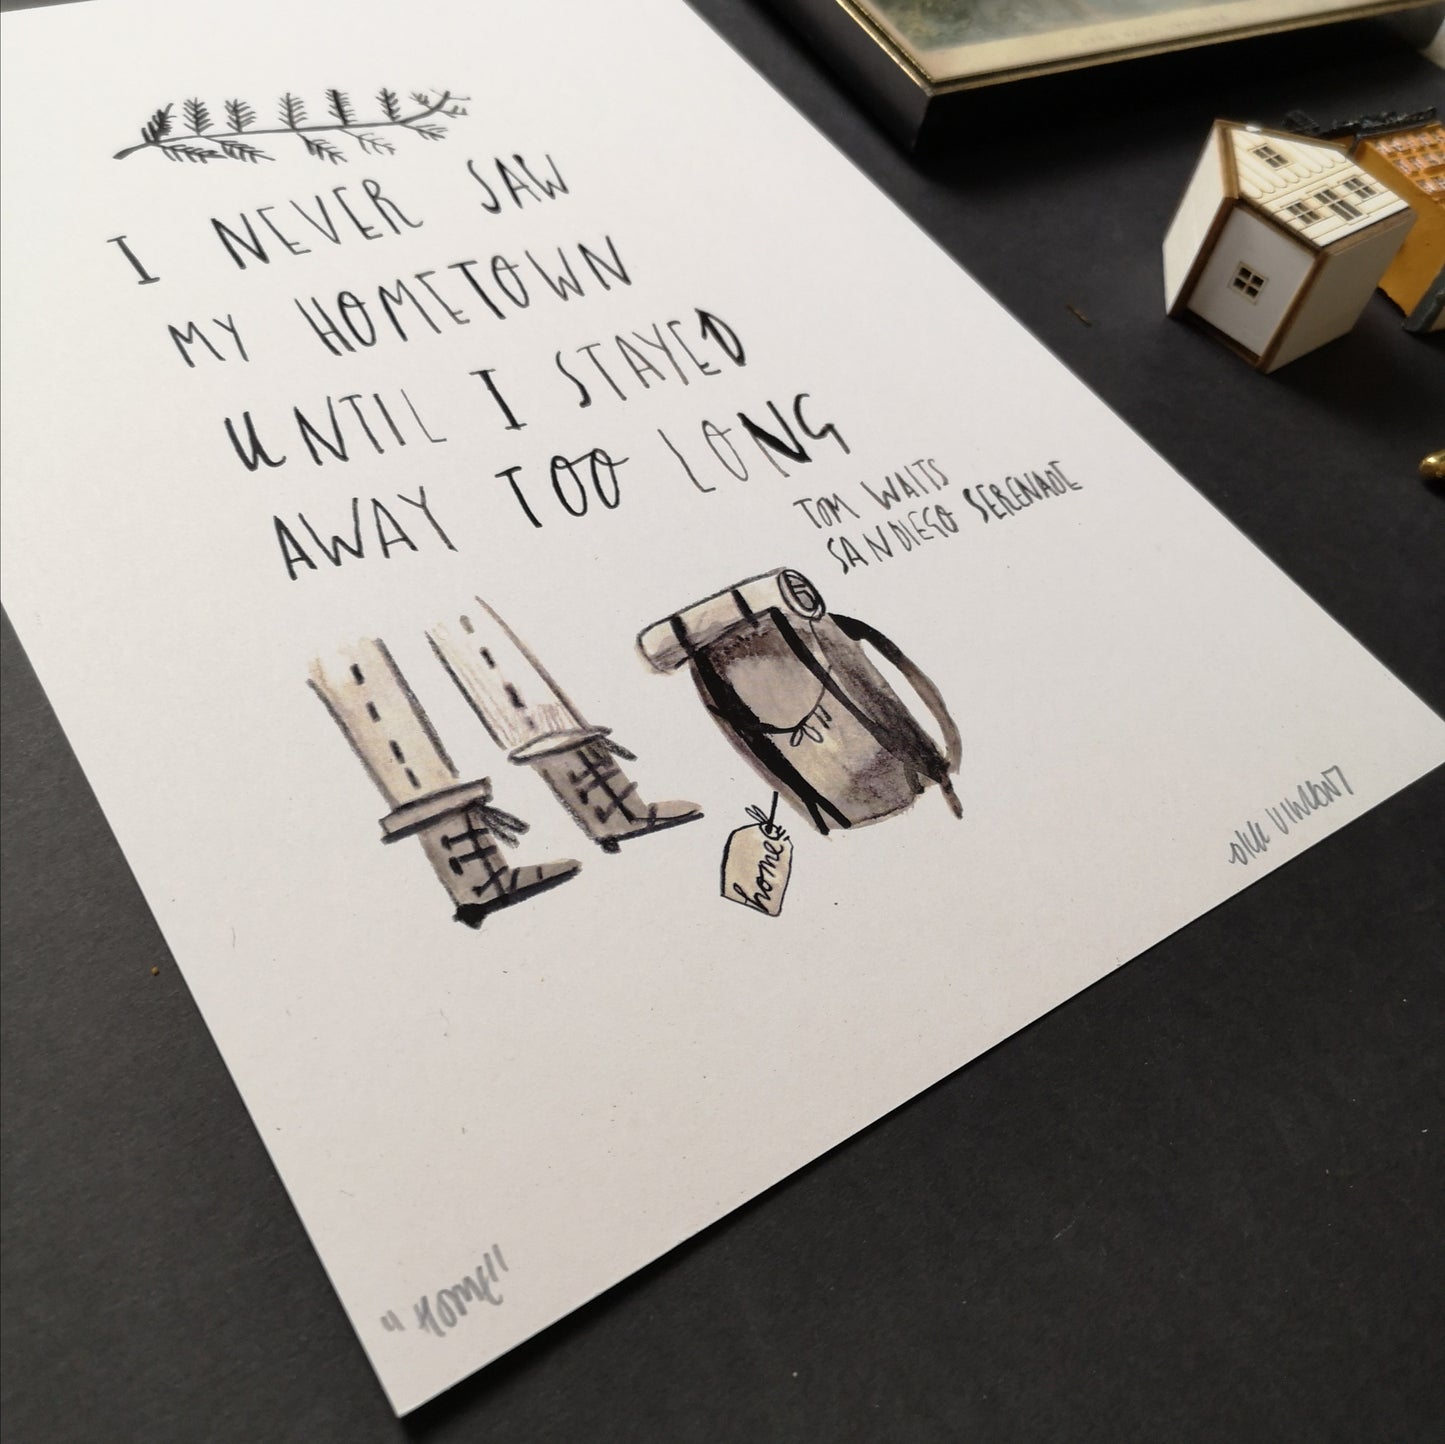 I NEVER SAW
MY HOMETOWN
UNTIL I STAYED
AWAY TOO LONG
TOM WAITS
SAN DIEGO SERENADE
home
"HOME"